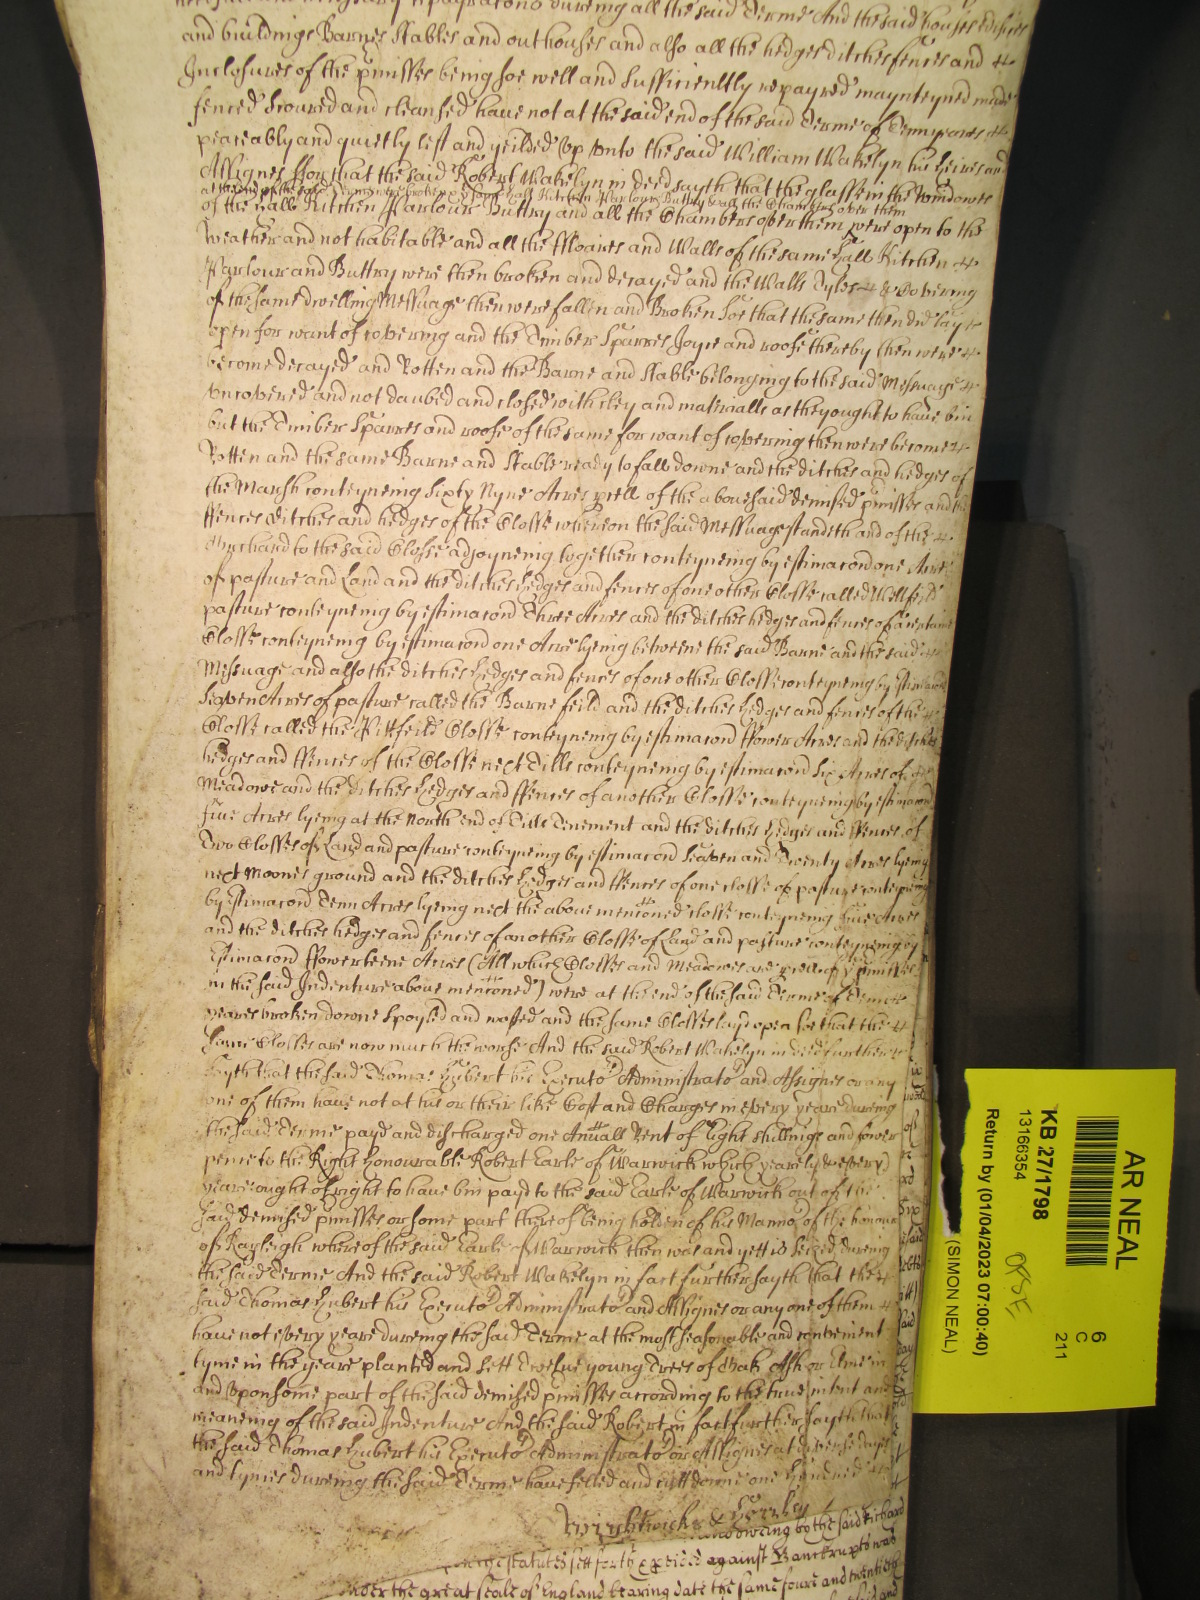 and buildings Barnes Stables and outhouses and also all the hedges ditches fences and
Inclosures of the pmisses being soe well and sufficiently repayred maynteyned made
fenced scoured and cleansed have not at the said end of the said Terme of Tenn yeares
peaceably and quietly left and yeilded up unto the said William Wakelyn his heires and
Assignes ffor that the said Robert Wakelyn in deed sayth that the glasse in the windowes
at the end of the said Terme were broken of the said Hall Kitchen Parlour Buttry and all the Chambers over them
of the Hall Kitchen Parlour Buttry and all the Chambers over them were open to the
weather and not habitable and all the ffloares and Walls of the same Hall Kitchen
Parlour and Buttry were then broken and decayed and the Walls Tyles & Covering
of the same dwelling Messuage then were fallen and Broken Soe that the same then did lay
open for want of covering and the Timber Sparres Joyce and roofe thereby then were
become decayed and Rotten and the Barne and Stable belonging to the said Messuage
uncovered and not daubed and closed with cley and materialls as they ought to have bin
but the Timber Sparres and roofe of the same for want of covering then were become
Rotten and the same Barne and Stable ready to fall downe and the ditches and hedges of
the Marsh conteyneing Sixty Nyne Acres pcell of the abovesaid demised pmisses and the
ffences ditches and hedges of the Closse whereon the said Messuage standeth and of the
Orrchard to the said Closse adjoyneing together conteyneing by estimacon one Acre
of pasture and Land and the ditches hedges and fences of one other Closse called Wellfeild
pasture conteyneing by estimacon Three Acres and the ditches hedges and fences of a certaine
Closse conteyneing by estimacon one Acre lyeing betweene the said Barne and the said
Messuage and also the ditches hedges and fences of one other Closse conteyneing by Estimacon
Seaven Acres of pasture called the Barne feild and the ditches hedges and fences of the
Closse called the Pittfeild Closse conteyneing by estimacon ffower Acres and the ditches
hedges and ffences of the Closse next Tills conteyneing by estimacon Six Acres of
Meadowe and the ditches hedges and ffences of another Closse conteyneing by estimacon
five Acres lyeing at the North end of Tills Tenement and the ditches hedges and ffences of
Two Closses of Land and pasture conteyneing by estimacon Seaven and Twenty Acres lyeing
next Moones ground and the ditches hedges and ffences of one closse of pasture conteyneing
by estimacon Tenn Acres lyeing next the above menconed closse conteyneing five Acres
and the ditches hedges and fences of another Closse of Land and pasture conteyneing by
Estimacon ffowerteene Acres (All which Closses and Meadowes are pcell of ye pmisses
in the said Indenture above menconed) were at the end of the said Terme of Tenn
yeares broken downe Spoyled and wasted and the same Closses layd open soe that the
same Closses are now much the worse And the said Robert Wakelyn in deed further
sayth that the said Thomas Hubert his Executor Administrator and Assignes or any
one of them have not at his or their like Cost and Charges in every yeare dureing
the said Terme payd and discharged one Anuall Rent of Eight shillings and fower
pence to the Right honourable Robert Earle of Warwick which yearely & every
yeare ought of right to have bin payd to the said Earle of Warwick out of the
said demised pmisses or some part thereof being holden of his Mannor of the honour
of Rayleigh whereof the said Earle of Warwick then was and yett is Seized dureing
the said Terme And the said Robert Wakelyn in fact further sayth that the
said Thomas Hubert his Executor Administrator and Assignes or any one of them
have not every yeare dureing the said Terme at the most seasonable and convenient
tyme in the yeare planted and sett Twelve young Trees of Oak Ash or Elme in
and upon some part of the said demised pmisses according to the true intent and
meaneing of the said Indenture And the said Robert in fact further sayth that
the said Thomas Hubert his Executor Administrator or Assignes at diverse dayes
and tymes dureing the said Terme have felled and cutt downe one Hundred
owing to the said Richard
the statutes sett forth against Banckrupts was
under the great seale of England bearing date the same foure and twentieth
AR NEAL
6
C
211
KB 27/1798
13166354
Return by (01/04/2023 07:00:40)
(SIMON NEAL)